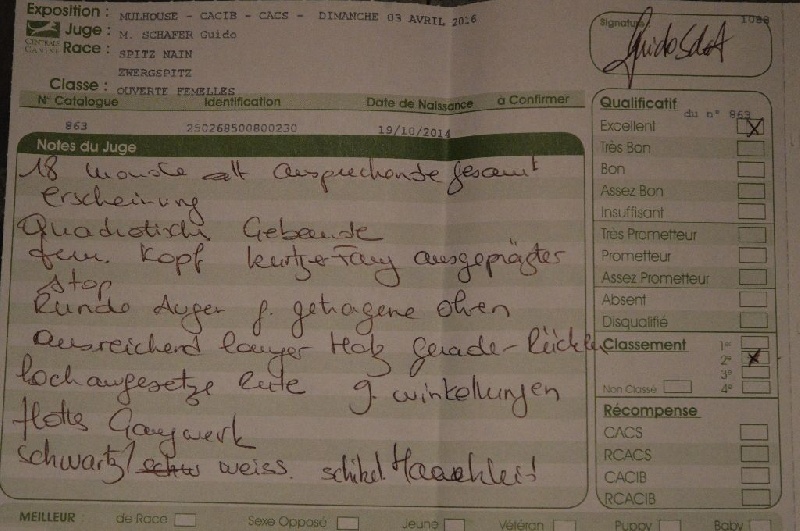 Exposition : MULHOUSE - CACIB - CACS - DIMANCHE 03 AVRIL 2016
Juge : M. SCHAFER Guido
CENTRALE CANINE
Race : SPITZ NAIN
ZWERGSPITZ
Classe : OUVERTE FEMELLES
Signature 1088
N° Catalogue Identification Date de Naissance à Confirmer
863 250268500800230 19/10/2014
Notes du Juge
18 Monate alt ansprechende gesamt
erscheinung
Quadratisch Gebäude
fem. Kopf kurtze Fang ausgeprägter
Stop
Runde Augen g. getragene Ohren
ausreichend langer Hals gerade Rücken
hochangesetze Rute g. winkelungen
flotts Gangwerk
schwartz/ weiss. Haarkleid
Qualificatif du n° 863
Excellent X
Très Bon
Bon
Assez Bon
Insuffisant
Très Prometteur
Prometteur
Assez Prometteur
Absent
Disqualifié
Classement 1e
2e X
3e
Non Classé 4e
Récompense
CACS
RCACS
CACIB
RCACIB
MEILLEUR : de Race Sexe Opposé Jeune Vétéran Puppy Baby